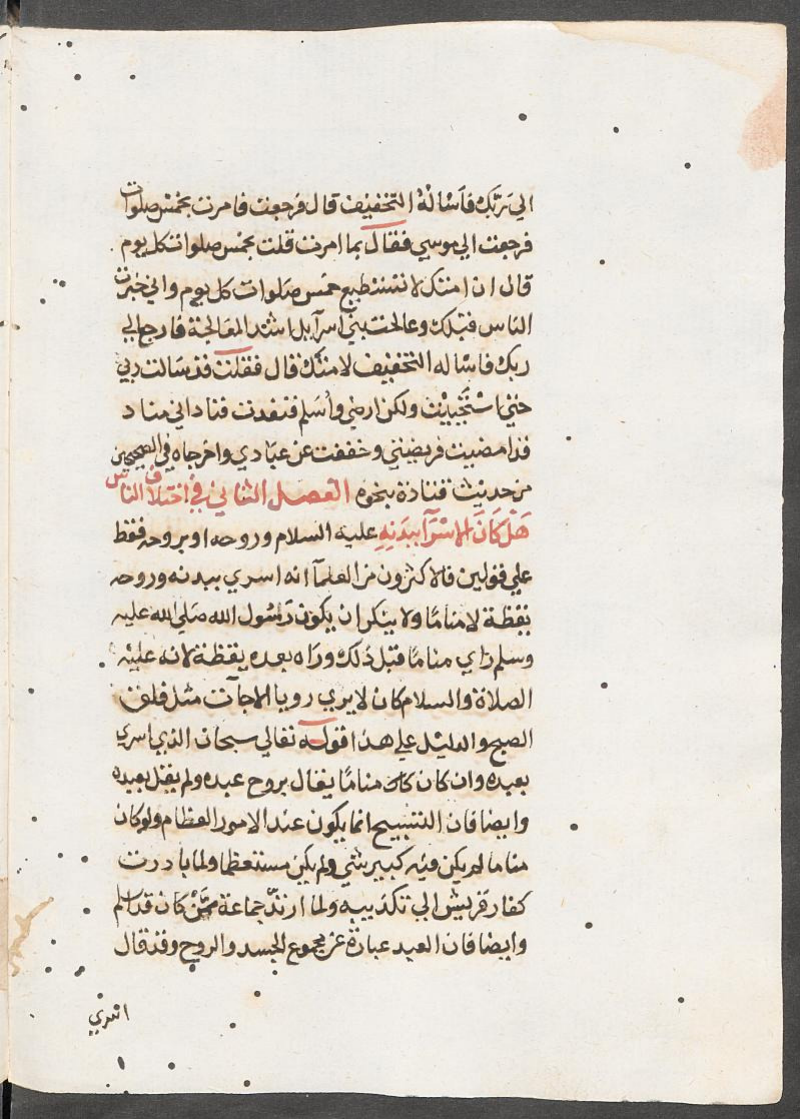 الي ربّك فاسْالهُ التخفيف قال فرجعت فامرت بخمس صلوات
فرجعت الي موسي فقال بما امرت قلت بخمس صلوات كل يوم
قال ان امتك لا تستطيع خمس صلوات كل يوم واني خبرت
الناس قبلك وعالجت بني اسرآيل اشد المعالجة فارجع الي
ربك فاساله التخفيف لامتك قال فقلت قد سالت ربي
حتي استحييت ولكن ارضي وأسلم فنفدت فناداني مناد
قد امضيت فريضتي وخففت عن عبادي واخرجاه في الصحيحين
من حديث قتادة بنحوه الفصل الثاني في اختلاف الناس
هَل كَانَ الاسْرآ ببدَنِهِ عليه السلام وروحه او بروحه فقط
علي قولين فالاكثرون من العلمآ انه اسري ببدنه وروحه
يقظة لا منامًا ولا ينكر ان يكون رَسُول الله صَلي الله عليه
وسلم راي منامًا قبل ذلك ورآه بعده يقظة لانه عليه
الصلاة والسلام كان لا يري رويا الا جآت مثل فلق
الصبح والدليل علي هذا قوله تعالي سبحان الذي اسري
بعبده وان كان كان منامًا يقال بروح عبده ولم يقل بعبده
وايضا فان التسبيح انما يكون عند الامور العظام ولو كان
مناما لم يكن فيه كبير شي ولم يكن مستعظما ولما بادرت
كفار قريش الي تكذيبه ولما ارتدّ جماعة ممَّن كان قد اسلم
وايضا فان العبد عبارة عن مجموع الجسد والروح وقد قال
اسري